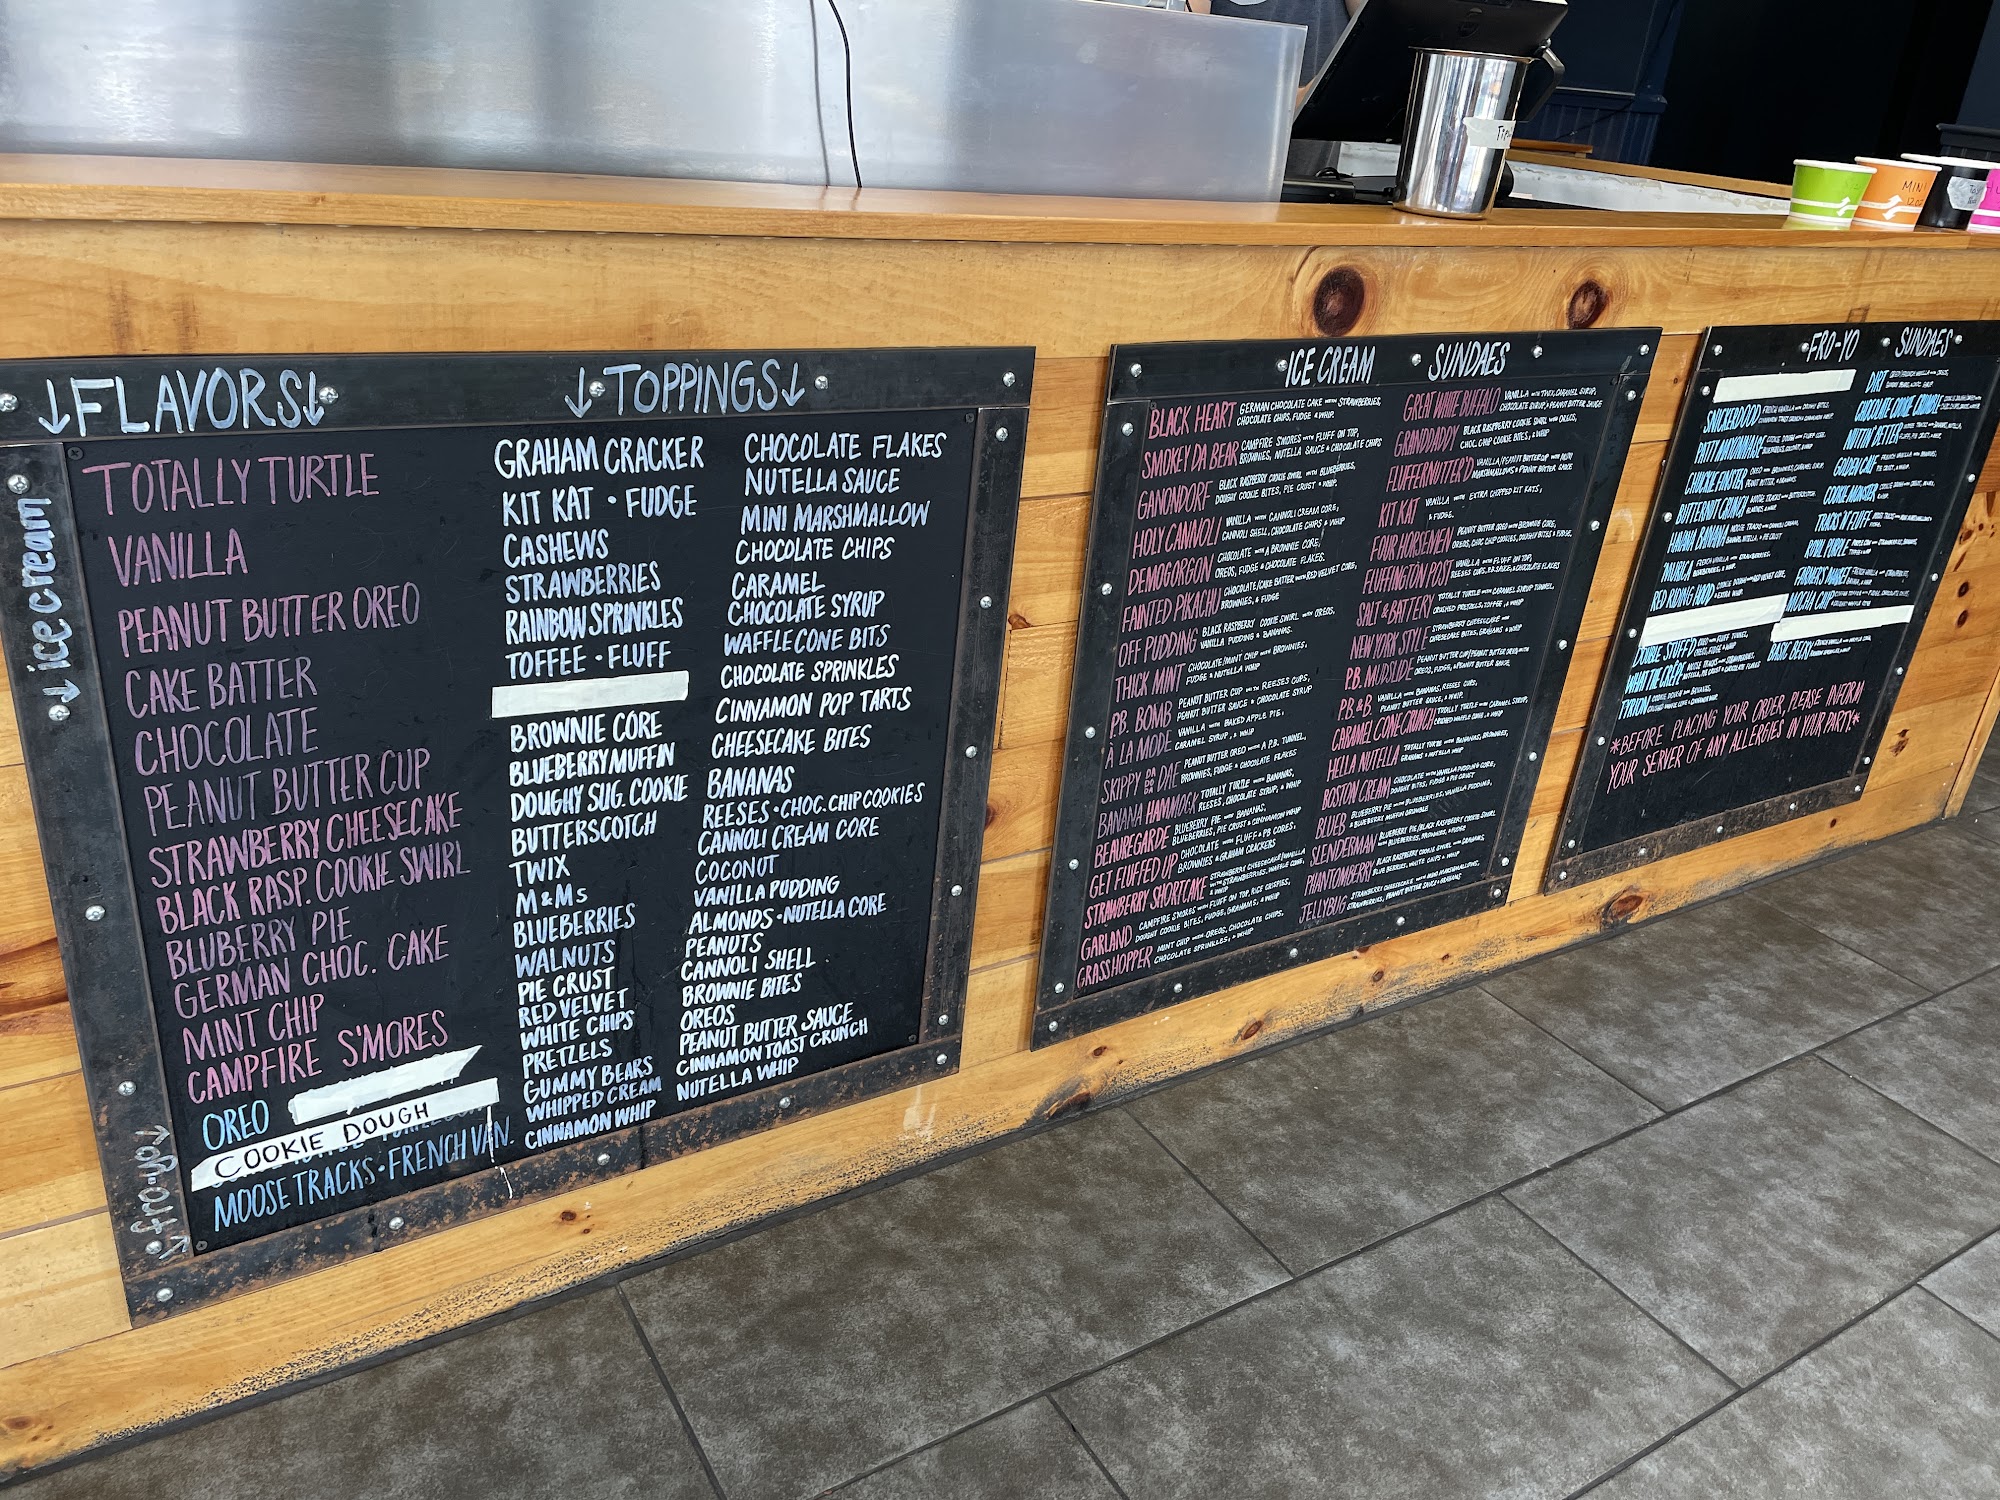 ↓FLAVORS↓
↓ice cream↓
TOTALLY TURTLE
VANILLA
PEANUT BUTTER OREO
CAKE BATTER
CHOCOLATE
PEANUT BUTTER CUP
STRAWBERRY CHEESECAKE
BLACK RASP. COOKIE SWIRL
BLUBERRY PIE
GERMAN CHOC. CAKE
MINT CHIP
CAMPFIRE S'MORES
↓fro-yo↓
OREO
COOKIE DOUGH
MOOSE TRACKS • FRENCH VAN.
↓TOPPINGS↓
GRAHAM CRACKER
KIT KAT • FUDGE
CASHEWS
STRAWBERRIES
RAINBOW SPRINKLES
TOFFEE • FLUFF
BROWNIE CORE
BLUEBERRY MUFFIN
DOUGHY SUG. COOKIE
BUTTERSCOTCH
TWIX
M&Ms
BLUEBERRIES
WALNUTS
PIE CRUST
RED VELVET
WHITE CHIPS
PRETZELS
GUMMY BEARS
WHIPPED CREAM
CINNAMON WHIP
CHOCOLATE FLAKES
NUTELLA SAUCE
MINI MARSHMALLOW
CHOCOLATE CHIPS
CARAMEL
CHOCOLATE SYRUP
WAFFLE CONE BITS
CHOCOLATE SPRINKLES
CINNAMON POP TARTS
CHEESECAKE BITES
BANANAS
REESES • CHOC. CHIP COOKIES
CANNOLI CREAM CORE
COCONUT
VANILLA PUDDING
ALMONDS • NUTELLA CORE
PEANUTS
CANNOLI SHELL
BROWNIE BITES
OREOS
PEANUT BUTTER SAUCE
CINNAMON TOAST CRUNCH
NUTELLA WHIP
ICE CREAM SUNDAES
BLACK HEART GERMAN CHOCOLATE CAKE WITH STRAWBERRIES,
CHOCOLATE CHIPS, FUDGE & WHIP.
SMOKEY DA BEAR CAMPFIRE S'MORES WITH FLUFF ON TOP,
BROWNIES, NUTELLA SAUCE & CHOCOLATE CHIPS
GANONDORF BLACK RASPBERRY COOKIE SWIRL WITH BLUEBERRIES,
DOUGHY COOKIE BITES, PIE CRUST & WHIP.
HOLY CANNOLI VANILLA WITH CANNOLI CREAM CORE,
CANNOLI SHELL, CHOCOLATE CHIPS & WHIP
DEMOGORGON CHOCOLATE WITH A BROWNIE CORE,
OREOS, FUDGE & CHOCOLATE FLAKES.
FAINTED PIKACHU CHOCOLATE/CAKE BATTER WITH RED VELVET CORE,
BROWNIES, & FUDGE
OFF PUDDING BLACK RASPBERRY COOKIE SWIRL WITH OREOS,
VANILLA PUDDING & BANANAS.
THICK MINT CHOCOLATE/MINT CHIP WITH BROWNIES,
FUDGE & NUTELLA WHIP
P.B. BOMB PEANUT BUTTER CUP WITH REESES CUPS,
PEANUT BUTTER SAUCE & CHOCOLATE SYRUP
À LA MODE VANILLA WITH BAKED APPLE PIE,
CARAMEL SYRUP, & WHIP
SKIPPY DA DA DA DAE PEANUT BUTTER OREO WITH A P.B. TUNNEL,
BROWNIES, FUDGE & CHOCOLATE FLAKES
BANANA HAMMOCK TOTALLY TURTLE WITH BANANAS,
REESES, CHOCOLATE SYRUP, & WHIP
BEAUREGARDE BLUEBERRY PIE WITH BANANAS,
BLUEBERRIES, PIE CRUST & CINNAMON WHIP
GET FLUFFED UP CHOCOLATE WITH FLUFF & PB CORES,
BROWNIES & GRAHAM CRACKERS
STRAWBERRY SHORTCAKE STRAWBERRY CHEESECAKE/VANILLA
WITH STRAWBERRIES, WAFFLE CONE,
& WHIP
GARLAND CAMPFIRE S'MORES WITH FLUFF ON TOP, RICE CRISPIES,
DOUGHY COOKIE BITES, FUDGE, GRAHAMS, & WHIP
GRASSHOPPER MINT CHIP WITH OREOS, CHOCOLATE CHIPS,
CHOCOLATE SPRINKLES, & WHIP
GREAT WHITE BUFFALO VANILLA WITH TWIX, CARAMEL SYRUP,
CHOCOLATE SYRUP, & PEANUT BUTTER SAUCE
GRANDDADDY BLACK RASPBERRY COOKIE SWIRL WITH OREOS,
CHOC. CHIP COOKIE BITES, & WHIP
FLUFFERNUTTER'D VANILLA/PEANUT BUTTER CUP WITH
MARSHMALLOWS & PEANUT BUTTER SAUCE
KIT KAT VANILLA WITH EXTRA CHOPPED KIT KATS,
& FUDGE.
FOUR HORSEMEN PEANUT BUTTER OREO WITH BROWNIE CORE,
OREOS, CHOC CHIP COOKIES, DOUGHY BITES & FUDGE.
FLUFFINGTON POST VANILLA WITH FLUFF ON TOP,
REESES CUPS, P.B. SAUCE, & CHOCOLATE FLAKES
SALT & BATTERY TOTALLY TURTLE WITH CARAMEL SYRUP TUNNEL,
CRUSHED PRETZELS, TOFFEE, & WHIP
NEW YORK STYLE STRAWBERRY CHEESECAKE WITH
CHEESECAKE BITES, GRAHAMS & WHIP
P.B. MUDSLIDE PEANUT BUTTER CUP/PEANUT BUTTER OREO WITH
OREOS, FUDGE, & PEANUT BUTTER SAUCE.
P.B. & B. VANILLA WITH BANANAS, REESES CUPS,
PEANUT BUTTER SAUCE, & WHIP.
CARAMEL CONE CRUNCH TOTALLY TURTLE WITH CARAMEL SYRUP,
CRUSHED WAFFLE CONE, & WHIP
HELLA NUTELLA TOTALLY TURTLE WITH BANANAS, BROWNIES,
GRAHAMS & NUTELLA WHIP
BOSTON CREAM CHOCOLATE WITH VANILLA PUDDING CORE,
DOUGHY BITES, FUDGE & PIE CRUST
BLUEB BLUEBERRY PIE WITH BLUEBERRIES, VANILLA PUDDING,
& BLUEBERRY MUFFIN CRUMBLE
SLENDERMAN BLUEBERRY PIE/BLACK RASPBERRY COOKIE SWIRL
WITH BLUEBERRIES, BROWNIES, & FUDGE
PHANTOMBERRY BLACK RASPBERRY COOKIE SWIRL WITH BANANAS,
BLUEBERRIES, WHITE CHIPS & WHIP
JELLYBUG STRAWBERRY CHEESECAKE WITH MINI MARSHMALLOWS,
STRAWBERRIES, PEANUT BUTTER SAUCE & GRAHAMS
FRO-YO SUNDAES
SNICKERDOOD
PATTY MAYONNAISE
CHUCKIE FINSTER
BUTTERNUT CRUNCH
HAVANA BANANA
RED RIDING HOOD
DOUBLE STUFF'D
WHAT THE CRÊPE
TYRION
DIRT
CHOCOLATE COOKIE CRUMBLE
NUTTIN' BETTER
GOLDEN CALF
COOKIE MONSTER
TRACKS 'N' FLUFF
ROYAL PURPLE
FARMER'S MARKET
MOCHA CHIP
BASIC BECKY
*BEFORE PLACING YOUR ORDER, PLEASE INFORM
YOUR SERVER OF ANY ALLERGIES IN YOUR PARTY.*
MIN
12 oz